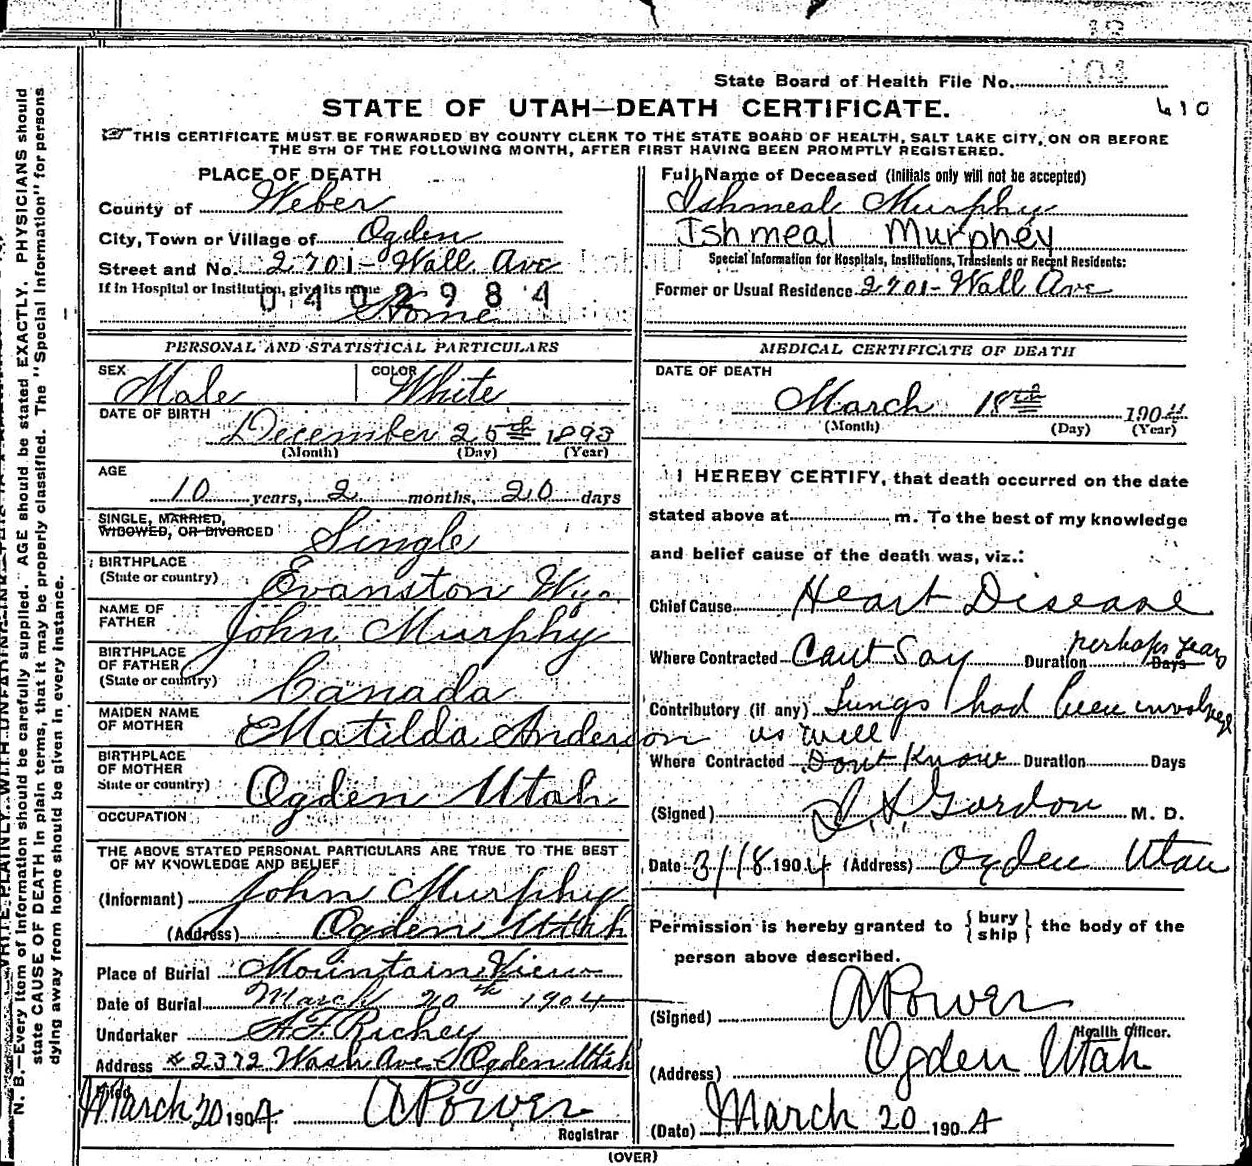 State Board of Health File No. 104
STATE OF UTAH—DEATH CERTIFICATE.
610
THIS CERTIFICATE MUST BE FORWARDED BY COUNTY CLERK TO THE STATE BOARD OF HEALTH, SALT LAKE CITY, ON OR BEFORE
THE 5TH OF THE FOLLOWING MONTH, AFTER FIRST HAVING BEEN PROMPTLY REGISTERED.
PLACE OF DEATH
County of Weber
City, Town or Village of Ogden
Street and No. 2701 - Wall Ave
If in Hospital or Institution, give its name
0402984
Home
PERSONAL AND STATISTICAL PARTICULARS
SEX Male COLOR White
DATE OF BIRTH
December 25th 1893
(Month) (Day) (Year)
AGE
10 years, 2 months, 20 days
SINGLE, MARRIED,
WIDOWED, OR DIVORCED Single
BIRTHPLACE
(State or country) Evanston Wyo.
NAME OF
FATHER John Murphy
BIRTHPLACE
OF FATHER
(State or country) Canada
MAIDEN NAME
OF MOTHER Matilda Anderson
BIRTHPLACE
OF MOTHER
State or country) Ogden Utah
OCCUPATION
THE ABOVE STATED PERSONAL PARTICULARS ARE TRUE TO THE BEST
OF MY KNOWLEDGE AND BELIEF
(Informant) John Murphy
(Address) Ogden Utah
Place of Burial Mountain View
Date of Burial March 20th 1904
Undertaker A. F. Richey
Address # 2372 Wash Ave Ogden Utah
Filed
March 20 1904. A Power
Registrar
Full Name of Deceased (Initials only will not be accepted)
Ishmeal Murphy
Ishmeal Murphey
Special Information for Hospitals, Institutions, Transients or Recent Residents:
Former or Usual Residence 2701 - Wall Ave
MEDICAL CERTIFICATE OF DEATH
DATE OF DEATH
March 18th 1904
(Month) (Day) (Year)
I HEREBY CERTIFY, that death occurred on the date
stated above at m. To the best of my knowledge
and belief cause of the death was, viz.:
Chief Cause Heart Disease
Where Contracted Cant Say Duration perhaps years Days
Contributory (if any) Lungs had been involved
as well
Where Contracted Dont Know Duration Days
(Signed) Gordon M. D.
Date 3/18 1904 (Address) Ogden Utah
Permission is hereby granted to { bury ship } the body of the
person above described.
(Signed) A Power
Health Officer.
(Address) Ogden Utah
(Date) March 20 1904
(OVER)
N. B.—Every item of information should be carefully supplied. AGE should be stated EXACTLY. PHYSICIANS should
state CAUSE OF DEATH in plain terms, that it may be properly classified. The "Special Information" for persons
dying away from home should be given in every instance.